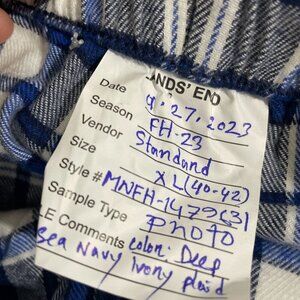 LANDS' END
Date 9.27.2023
Season FH-23
Vendor Standard
Size XL (40-42)
Style # MNFH-1479(3)
Sample Type PHOTO
LE Comments color: Deep
Sea Navy Ivory plaid